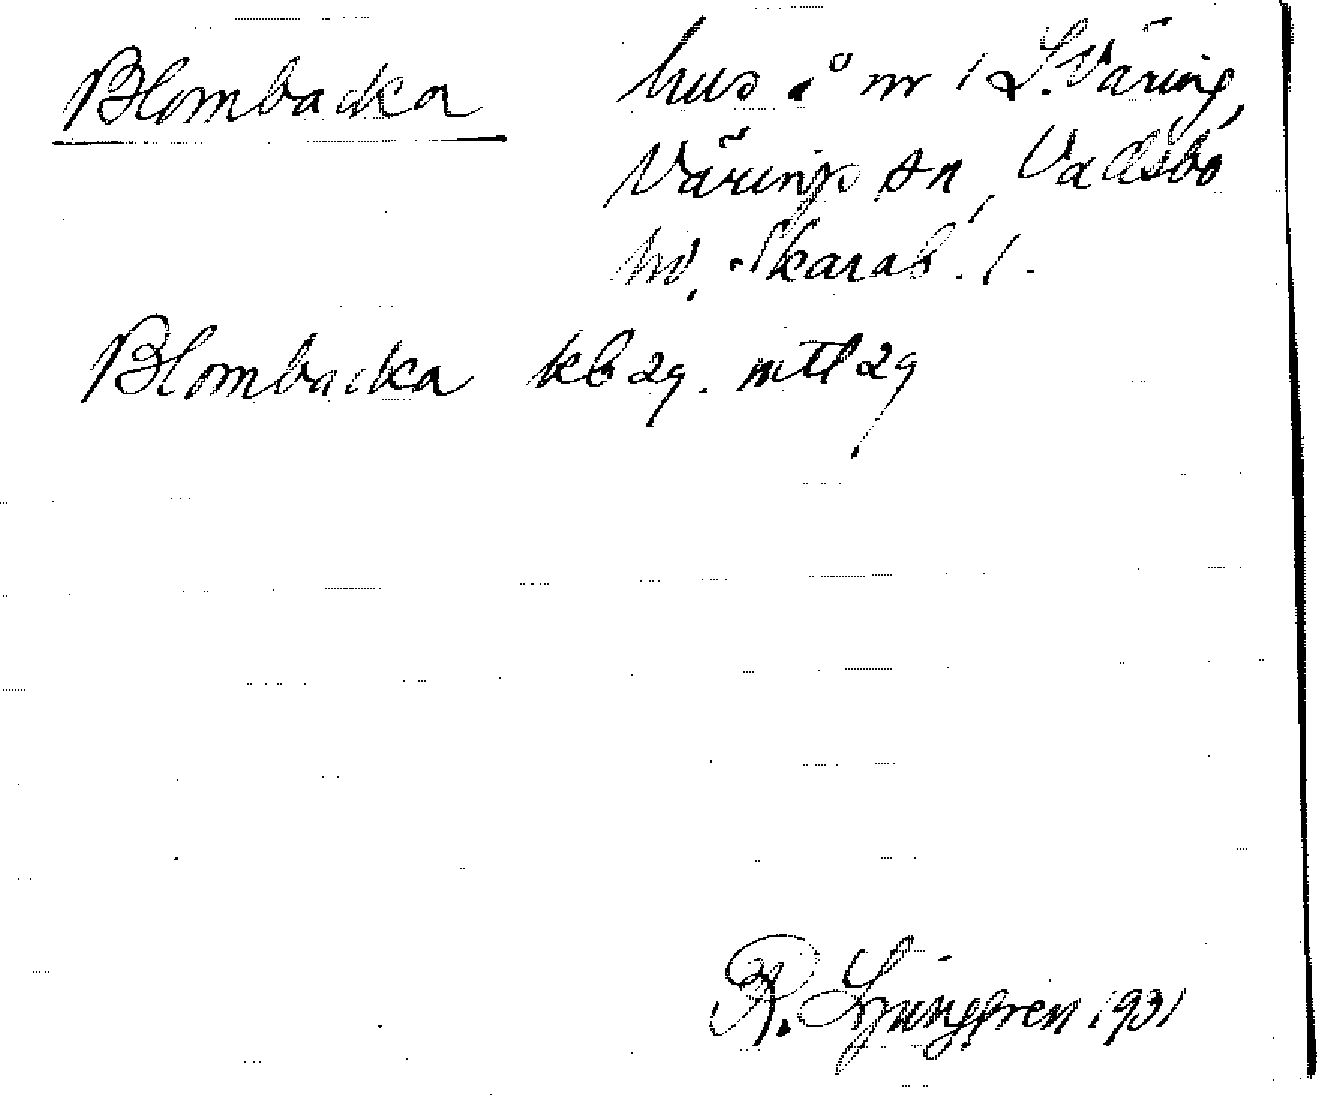 Blombacka hus å nr 1 L. Väring,
Värings sn, Vadsbo
hd, Skarab. l.
Blombacka kb 29. mtl 29
R. Ljunggren 1931